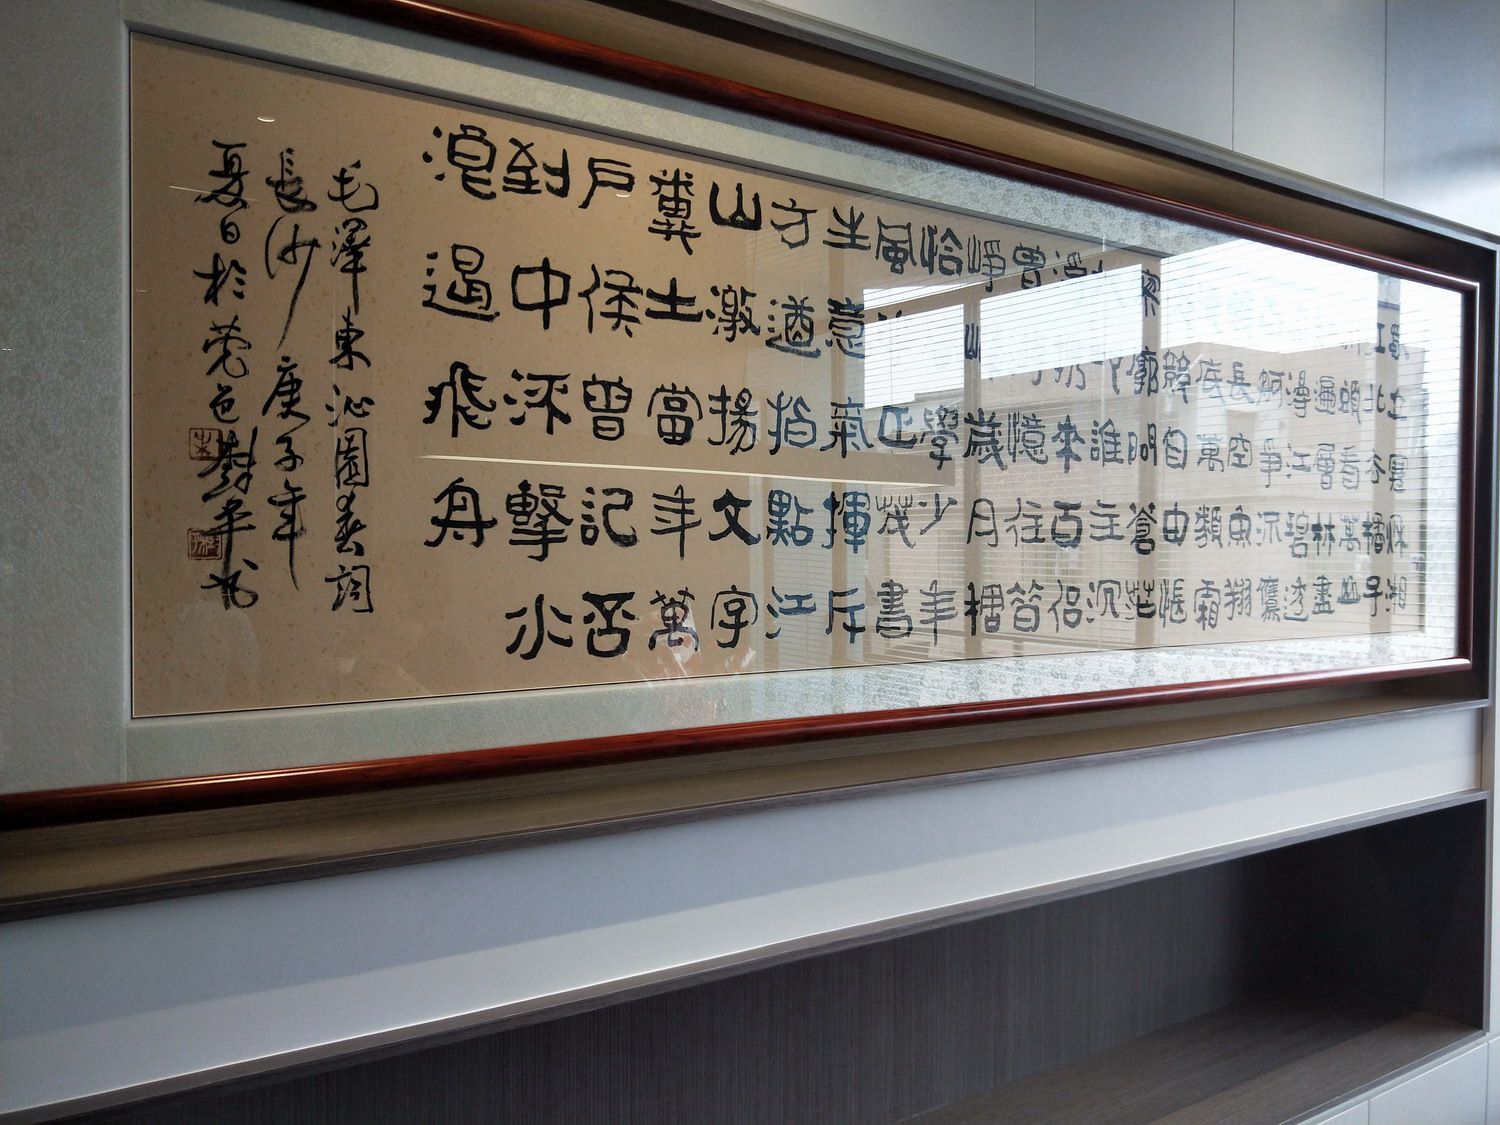 立寒秋湘
江北去橘子
頭看萬山
遍層林盡
漫江碧透
舸爭流鷹
長空魚翔
底萬類霜
競自由悵
寥廓問蒼茫
誰主沉
浮攜來百侶
曾憶往昔
崢歲月稠
恰學少年
風正茂書
生意氣揮斥
方遒指點江
山激揚文字
糞土當年萬
戶侯曾記否
到中流擊水
浪遏飛舟
毛澤東沁園春詞
長沙庚子年
夏日於莞邑樹平书